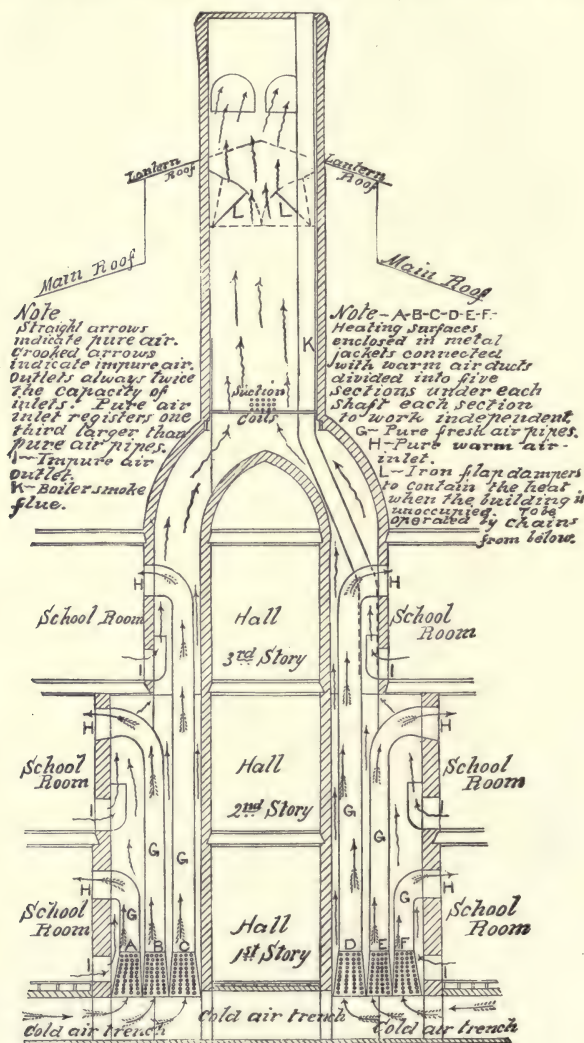 Lantern
Roof
Lantern
Roof
L
L
Main Roof
Main Roof
Note
Straight arrows
indicate pure air.
Crooked arrows
indicate impure air.
Outlets always twice
the capacity of
inlets. Pure air
inlet registers one
third larger than
pure air pipes.
I-Impure air
outlet.
K-Boiler smoke
flue.
Note-A-B-C-D-E-F-
Heating surfaces
enclosed in metal
jackets connected
with warm air ducts
divided into five
sections under each
shaft each section
to work independent,
G-Pure fresh air pipes.
H-Pure warm air-
inlet.
L-Iron flap dampers
to contain the heat
when the building is
unoccupied. To be
operated by chains
from below.
K
Suction
Coils
H
H
School Room
Hall
3rd Story
School
Room
I
I
H
H
School
Room
Hall
2nd Story
School
Room
I
I
G
G
G
G
H
H
School
Room
Hall
1st Story
School
Room
G
G
A B C
D E F
I
I
Cold air trench
Cold air trench
Cold air trench